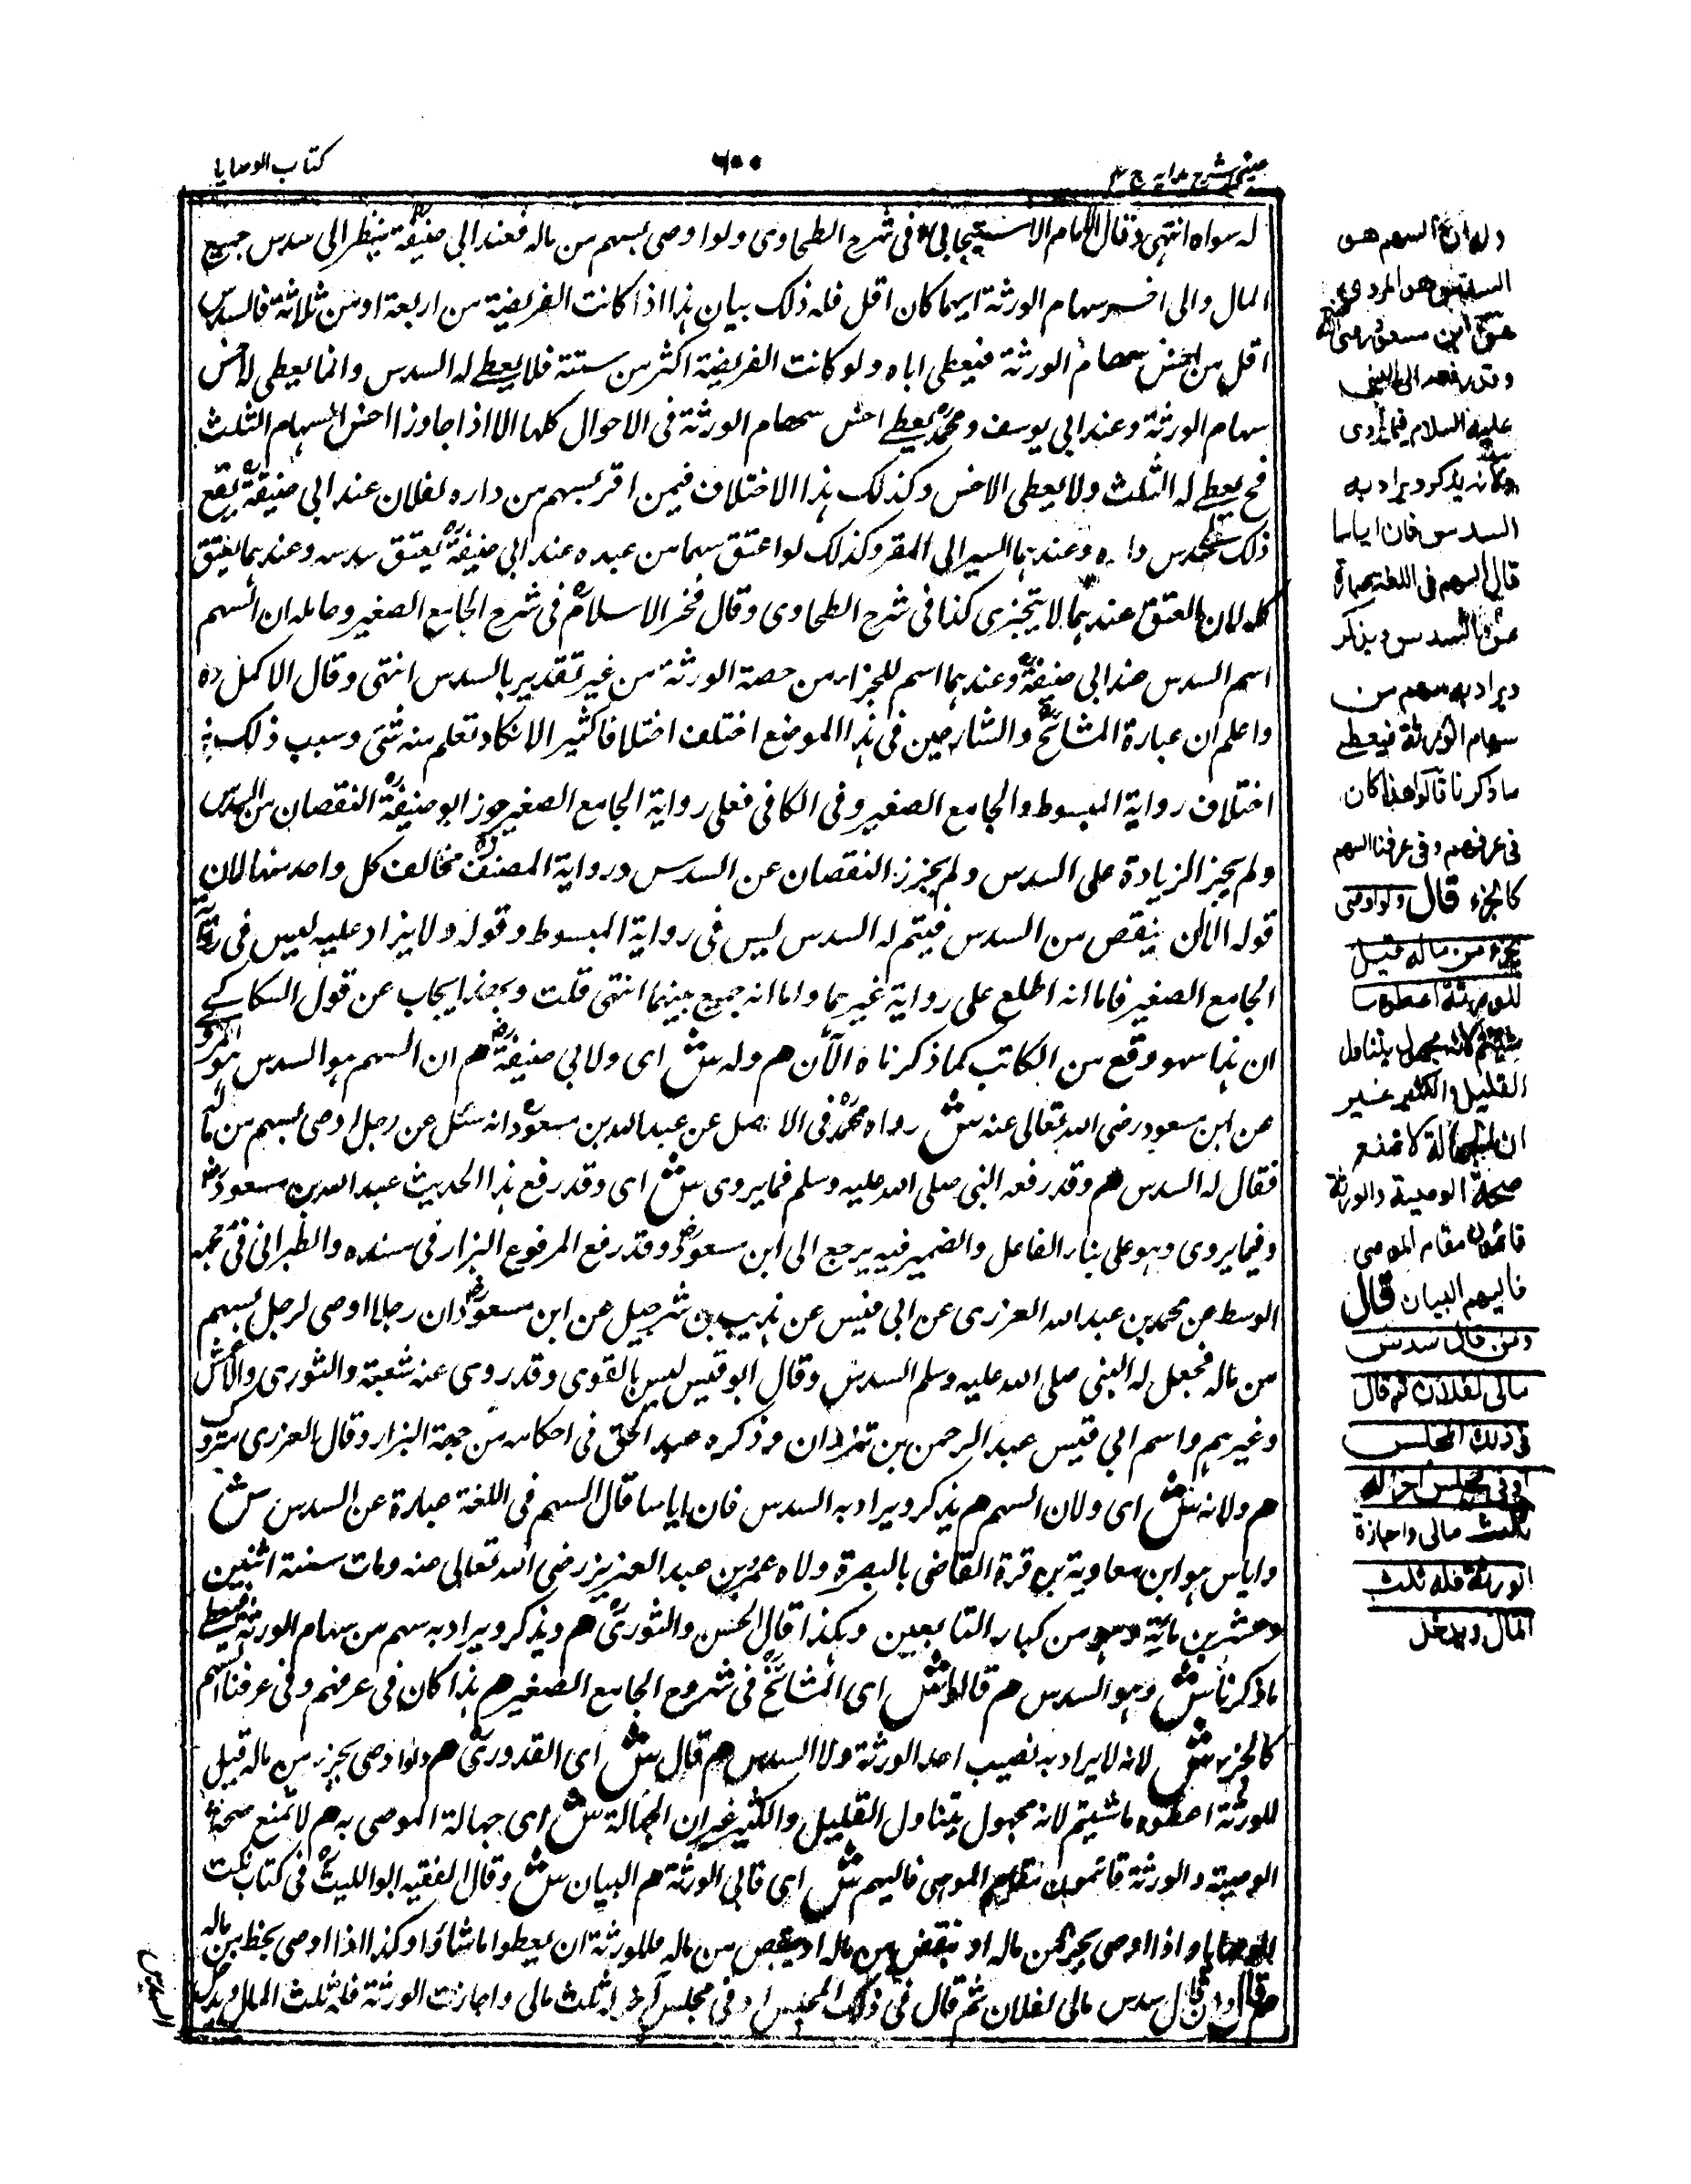 عینی شرح هدایه ج ۴
۶۰۰
کتاب الوصایا
له سواه انتهی وقال الامام الاسبیجابی فی شرح الطحاوی ولو اوصی بسهم من ماله فعند ابی حنیفة ینظر الی سدس جمیع
المال والی اخس سهام الورثة ایهما کان اقل فله ذلک بیان هذا اذا کانت الفریضة من اربعة او من ثلاثة فالسدس
اقل من اخس سهام الورثة فیعطی ایاه ولو کانت الفریضة اکثر من ستة فلا یعطی له السدس وانما یعطی لاخس
سهام الورثة وعند ابی یوسف ومحمد یعطی اخس سهام الورثة فی الاحوال کلها الا اذا جاوز اخس السهام الثلث
فح یعطی له الثلث ولا یعطی الاخس وکذلک هذا الاختلاف فیمن اقر بسهم من داره لفلان عند ابی حنیفة یقع
ذلک علی سدس داره وعندهما السیر الی المقر وکذلک لو اعتق سهما من عبده عند ابی حنیفة یعتق سدسه وعندهما یعتق
کله لان العتق عندهما لا یتجزی کذا فی شرح الطحاوی وقال فخر الاسلام فی شرح الجامع الصغیر وحاصله ان السهم
اسم السدس عند ابی حنیفة وعندهما اسم للجزء من حصة الورثة من غیر تقدیر بالسدس انتهی وقال الاکمل ره
واعلم ان عبارة المشائخ والشارحین فی هذا الموضع اختلف اختلافا کثیرا لا تکاد تعلم منه شئ وسبب ذلک
اختلاف روایة المبسوط والجامع الصغیر وفی الکافی فعلی روایة الجامع الصغیر جوز ابو حنیفة النقصان من السدس
ولم یجز الزیادة علی السدس ولم یجوز النقصان عن السدس وروایة المصنف مخالف کل واحد منهما لان
قوله الا ان ینقص من السدس فیتم له السدس لیس فی روایة المبسوط وقوله ولا یزاد علیه لیس فی روایة
الجامع الصغیر فاما انه اطلع علی روایة غیرهما واما انه جمع بینهما انتهی قلت وبهذا یجاب عن قول السکاکی
ان هذا سهو وقع من الکاتب کما ذکرناه الآن هم وله ش ای ولابی حنیفة هم ان السهم هو السدس هو المروی
عن ابن مسعود رضی الله تعالی عنه ش رواه محمد فی الاصل عن عبد الله بن مسعود انه سئل عن رجل اوصی بسهم من ماله
فقال له السدس هم وقد رفعه النبی صلی الله علیه وسلم فما یروی ش ای وقد رفع هذا الحدیث عبد الله بن مسعود
وفیما یروی وهو علی بناء الفاعل والضمیر فیه یرجع الی ابن مسعود وقد رفع المرفوع البزار فی سنده والطبرانی فی معجمه
الوسط عن محمد بن عبد الله العزری عن ابی قیس عن هذیب بن شرحبیل عن ابن مسعود ان رجلا اوصی لرجل بسهم
من ماله فجعل له النبی صلی الله علیه وسلم السدس وقال ابو قیس لیس بالقوی وقد روی عنه شعبة والثوری والاعمش
وغیرهم واسم ابی قیس عبد الرحمن بن وذکره عبد الحق فی احکامه من جهة البزار وقال العزری متروک
هم ولانه ش ای ولان السهم هم یذکر ویراد به السدس فان ایاسا قال السهم فی اللغة عبارة عن السدس ش
وایاس هو ابن معاویة بن قرة القاضی بالبصرة ولاه عمر بن عبد العزیز رضی الله تعالی عنه ومات سنة اثنین
وعشرین مایة وهو من کبار التابعین وهکذا قال الحسن والثوری هم ویذکر ویراد به سهم من سهام الورثة فیعطی
ما ذکرنا ش وهو السدس هم قالوا ش ای المشائخ فی شروح الجامع الصغیر هم هذا کان فی عرفهم وفی عرفنا السهم
کالجزء ش لانه لا یراد به نصیب احد الورثة ولا السدس هم قال ش ای القدوری هم ولو اوصی بجزء من ماله قیل
للورثة اعطوه ما شیتم لانه مجهول یتناول القلیل والکثیر غیر ان الجهالة ش ای جهالة الموصی به هم لا تمنع صحة
الوصیة والورثة قائمون مقام الموصی فالیهم ش ای فالی الورثة هم البیان ش وقال الفقیه ابو اللیث فی کتاب نکت
الوصایا واذا اوصی بجزء من ماله او ببعض من ماله او بنقص من ماله فللورثة ان یعطوا ما شاؤا وکذا اذا اوصی بحظ من ماله
هم قال ومن قال سدس مالی لفلان ثم قال فی ذلک المجلس او فی مجلس آخر له ثلث مالی واجازت الورثة فله ثلث المال ویدخل
السدس
وله ان السهم هو
السدس هو المروی
عن ابن مسعود رضی الله
وقد رفعه الی النبی
علیه السلام فیما یروی
ولانه یذکر ویراد به
السدس فان ایاسا
قال السهم فی اللغة عبارة
عن السدس ویذکر
ویراد به سهم من
سهام الورثة فیعطی
ما ذکرنا قالوا هذا کان
فی عرفهم وفی عرفنا السهم
کالجزء قال ولو اوصی
بجزء من ماله قیل
للورثة اعطوه ما
شئتم لانه مجهول یتناول
القلیل والکثیر غیر
ان الجهالة لا تمنع
صحة الوصیة والورثة
قائمون مقام الموصی
فالیهم البیان قال
ومن قال سدس
مالی لفلان ثم قال
فی ذلک المجلس
او فی مجلس آخر له
ثلث مالی واجازة
الورثة فله ثلث
المال ویدخل